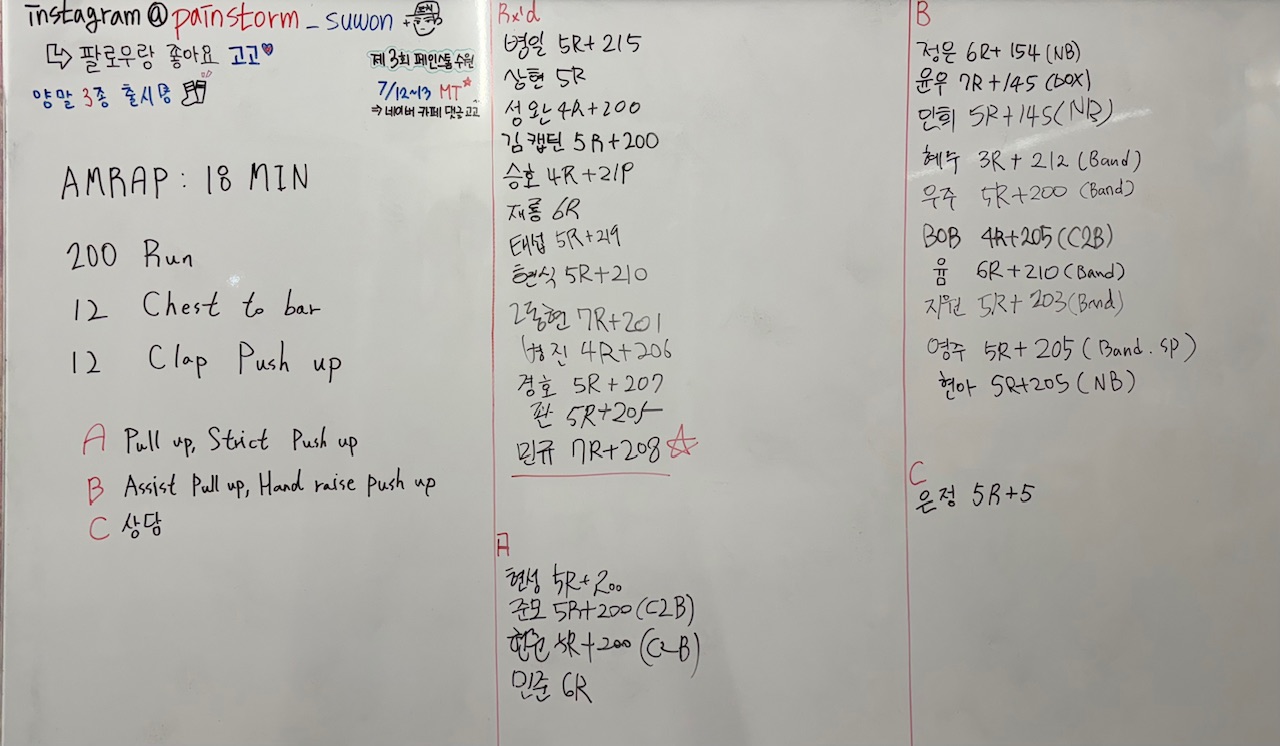 instagram@painstorm_suwon
팔로우랑 좋아요 고고
양말 3종 출시쿵
제3회 페인스톰 수원
7/12~13 MT
⇒ 네이버 카페 댓글 고고
AMRAP : 18 MIN
200 Run
12 Chest to bar
12 Clap Push up
A Pull up, Strict Push up
B Assist Pull up, Hand raise push up
C 상담
Rx'd
병일 5R+215
상현 5R
성완 4R+200
김캡틴 5R+200
승호 4R+219
재룡 6R
태섭 5R+219
현식 5R+210
2동현 7R+201
병진 4R+206
경호 5R+207
5R+205
민규 7R+208
A
현성 5R+200
준모 5R+200 (C2B)
5R+200 (C2B)
민준 6R
B
정은 6R+154 (NB)
윤우 7R+145 (box)
민희 5R+145 (NB)
혜수 3R+212 (Band)
우주 5R+200 (Band)
BOB 4R+205 (C2B)
윰 6R+210 (Band)
지원 5R+203 (Band)
영주 5R+205 (Band.sp)
현아 5R+205 (NB)
C
은정 5R+5